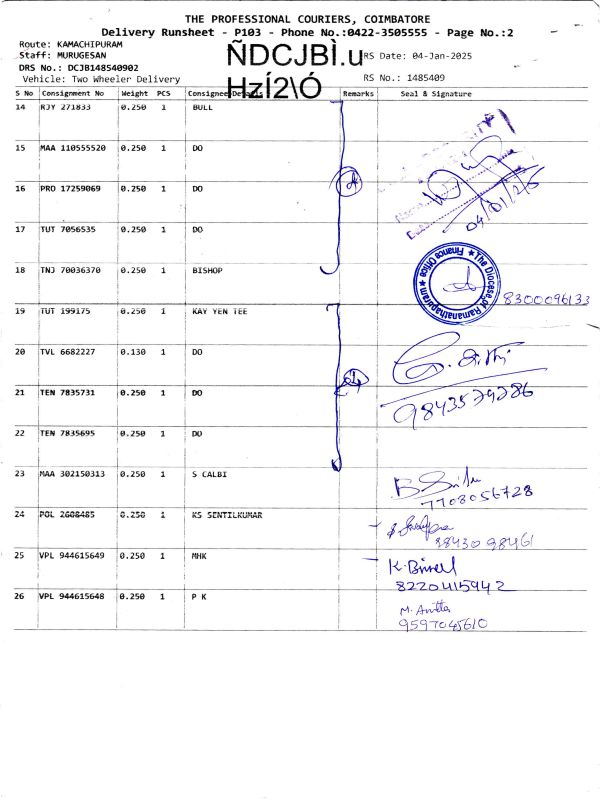 THE PROFESSIONAL COURIERS, COIMBATORE
Delivery Runsheet - P103 - Phone No.:0422-3505555 - Page No.:2
Route: KAMACHIPURAM
Staff: MURUGESAN
ÑDCJBÌ.u
HzÍ2\Ó
RS Date: 04-Jan-2025
DRS No.: DCJB148540902
Vehicle: Two Wheeler Delivery
RS No.: 1485409
S No Consignment No Weight PCS Consignee Details Remarks Seal & Signature
14 RJY 271833 0.250 1 BULL
15 MAA 110555520 0.250 1 DO
16 PRO 17259069 0.250 1 DO
04/01/25
17 TUT 7056535 0.250 1 DO
18 TNJ 70036370 0.250 1 BISHOP
The Diocese of Ramanathapuram
Finance Office
8300096133
19 TUT 199175 0.250 1 KAY YEN TEE
20 TVL 6682227 0.130 1 DO
21 TEN 7835731 0.250 1 DO
9843579286
22 TEN 7835695 0.250 1 DO
23 MAA 302150313 0.250 1 S CALBI
7708056728
24 POL 2608485 0.250 1 KS SENTILKUMAR
9843098461
25 VPL 944615649 0.250 1 MHK
8220415942
26 VPL 944615648 0.250 1 P K
M. Anitta
9597045610